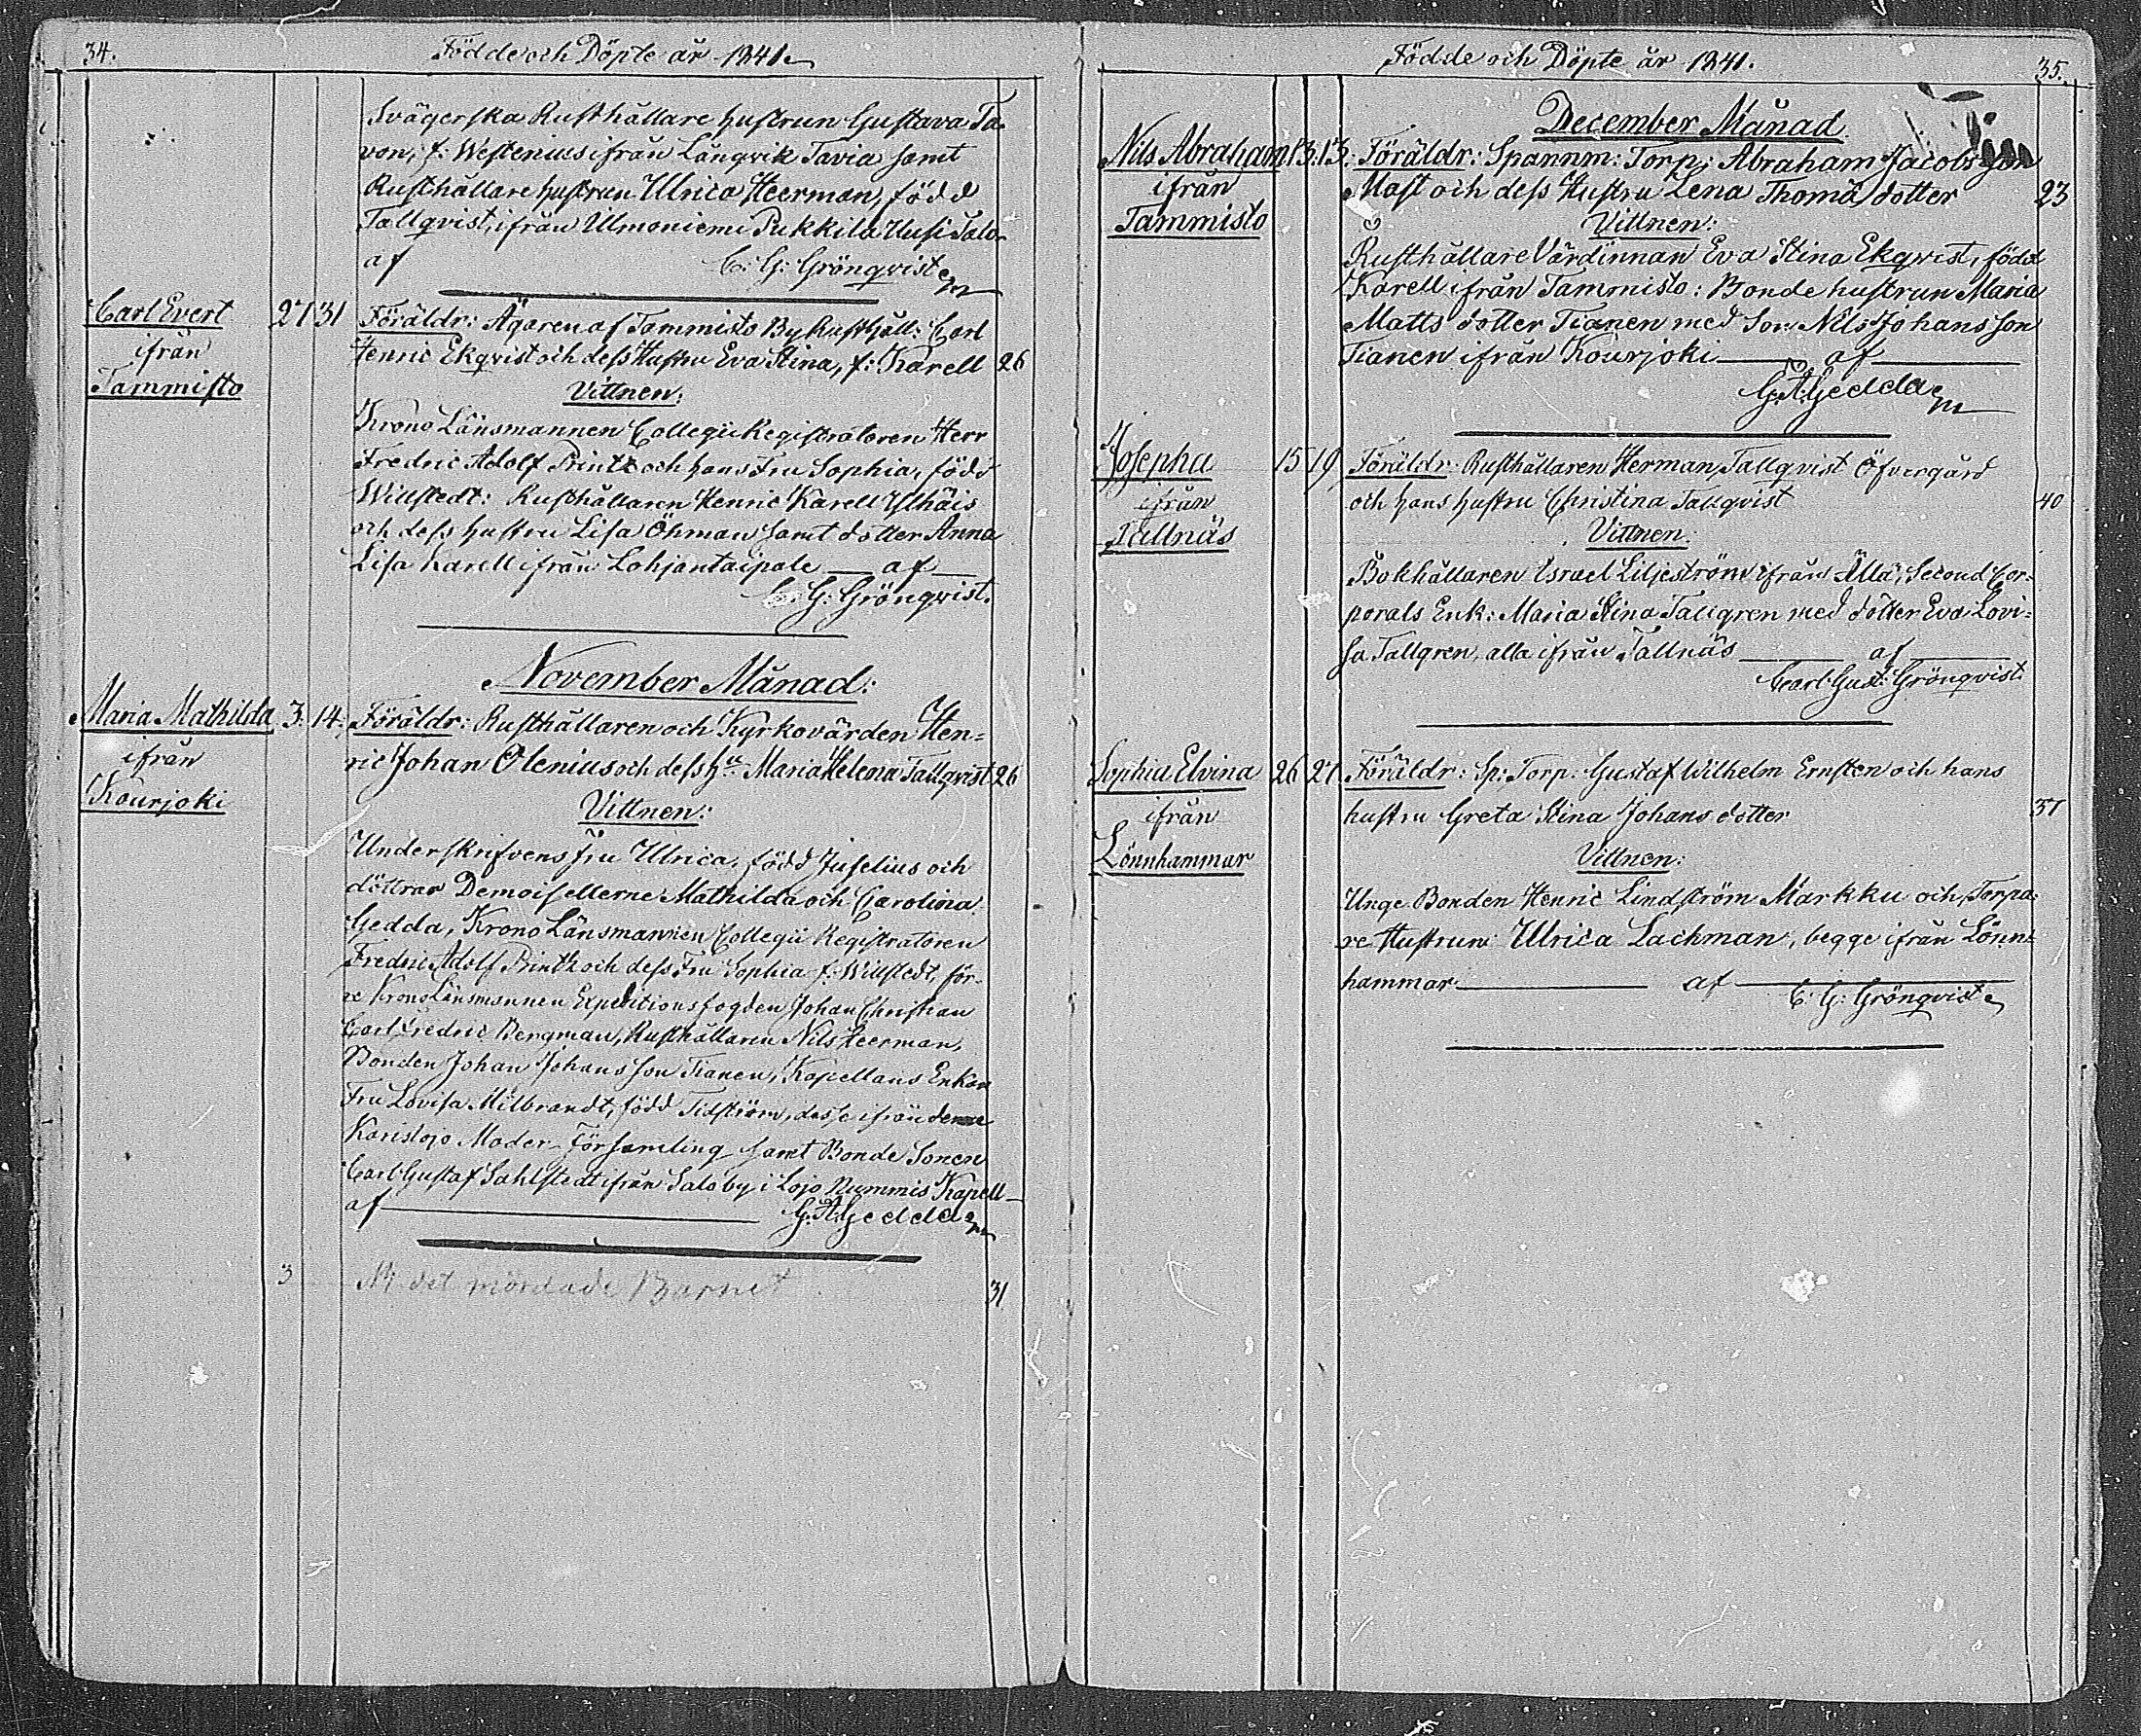 34.
Födde och Döpte år 1841.
Svägerska Rusthållare hustrun Gustava Ta-
von, f: Westenius ifrån Långvik Tavia samt
Rusthållare hustrun Ulrica Heerman, född
Tallqvist, ifrån Ulmoniemi Pukkila Uusi Talo
af C: G: Grönqvist
Carl Evert 27 31 Föräldr: Ägaren af Tammisto By Rusthåll: Carl
ifrån Henric Ekqvist och dess Hustru Eva Stina, f: Karell 26
Tammisto Vittnen:
Krono Länsmannen Collegii Registratoren Herr
Fredric Adolf Printz och hans Fru Sophia, född
Willstedt: Rusthållaren Henric Karell Ylhäis
och dess hustru Lisa Öhman samt dotter Anna
Lisa Karell ifrån Lohjantaipale af
C. G: Grönqvist.
November Månad:
Maria Mathilda 3. 14. Föräldr: Rusthållaren och Kyrkovärden Hen=
ifrån ric Johan Olenius och dess Hu Maria Helena Tallqvist 26
Kourjoki Vittnen:
Underskrifvens Fru Ulrica, född Juselius och
döttrar Demoisellerne Mathilda och Carolina
Gedda, Krono Länsmannen Collegii Registratoren
Fredric Adolf Printz och dess Fru Sophia f: Willstedt, för-
re Krono Länsmannen Expeditionsfogden Johan Christian
Carl Fredric Bergman, Rusthållaren Nils Heerman,
Bonden Johan Johansson Tianen, Kapellans Enkan
Fru Lovisa Milbrandt, född Tidström, desse ifrån denne
Karislojo Moder Församling samt Bonde Sonen
Carl Gustaf Sahlstedt ifrån Salo by i Lojo Nummis Kapell
af G. A. Gedda
3 det mördade Barnet 31
Födde och Döpte år 1841.
35.
December Månad
Nils Abraham 13. 13. Föräldr: Spannm: Torp: Abraham Jacobsson
ifrån Mast och dess Hustru Lena Thomä dotter 23
Tammisto Vittnen:
Rusthållare Värdinnan Eva Stina Ekqvist, född
Karell ifrån Tammisto: Bonde hustrun Maria
Matts dotter Tianen med Son Nils Johansson
Tianen ifrån Kourjoki af
G. A. Gedda
Josepha 15 19 Föräldr: Rusthållaren Herman Tallqvist Öfvergård
ifrån och hans hustru Christina Tallqvist 40
Tallnäs Vittnen:
Bokhållaren Israel Liljeström ifrån Ållä, Second Cor-
porals Enk: Maria Stina Tallgren med dotter Eva Lovi=
sa Tallgren, alla ifrån Tallnäs af
Carl Gust: Grönqvist.
Sophia Elvina 26 27. Föräldr: Sp: Torp: Gustaf Wilhelm Ernsten och hans
ifrån hustru Greta Stina Johans dotter 37
Lönnhammar Vittnen:
Unge Bonden Henric Lindström Markku och Torpa-
re Hustrun Ulrica Lachman, begge ifrån Lönn=
hammar af
C: G: Grönqvist